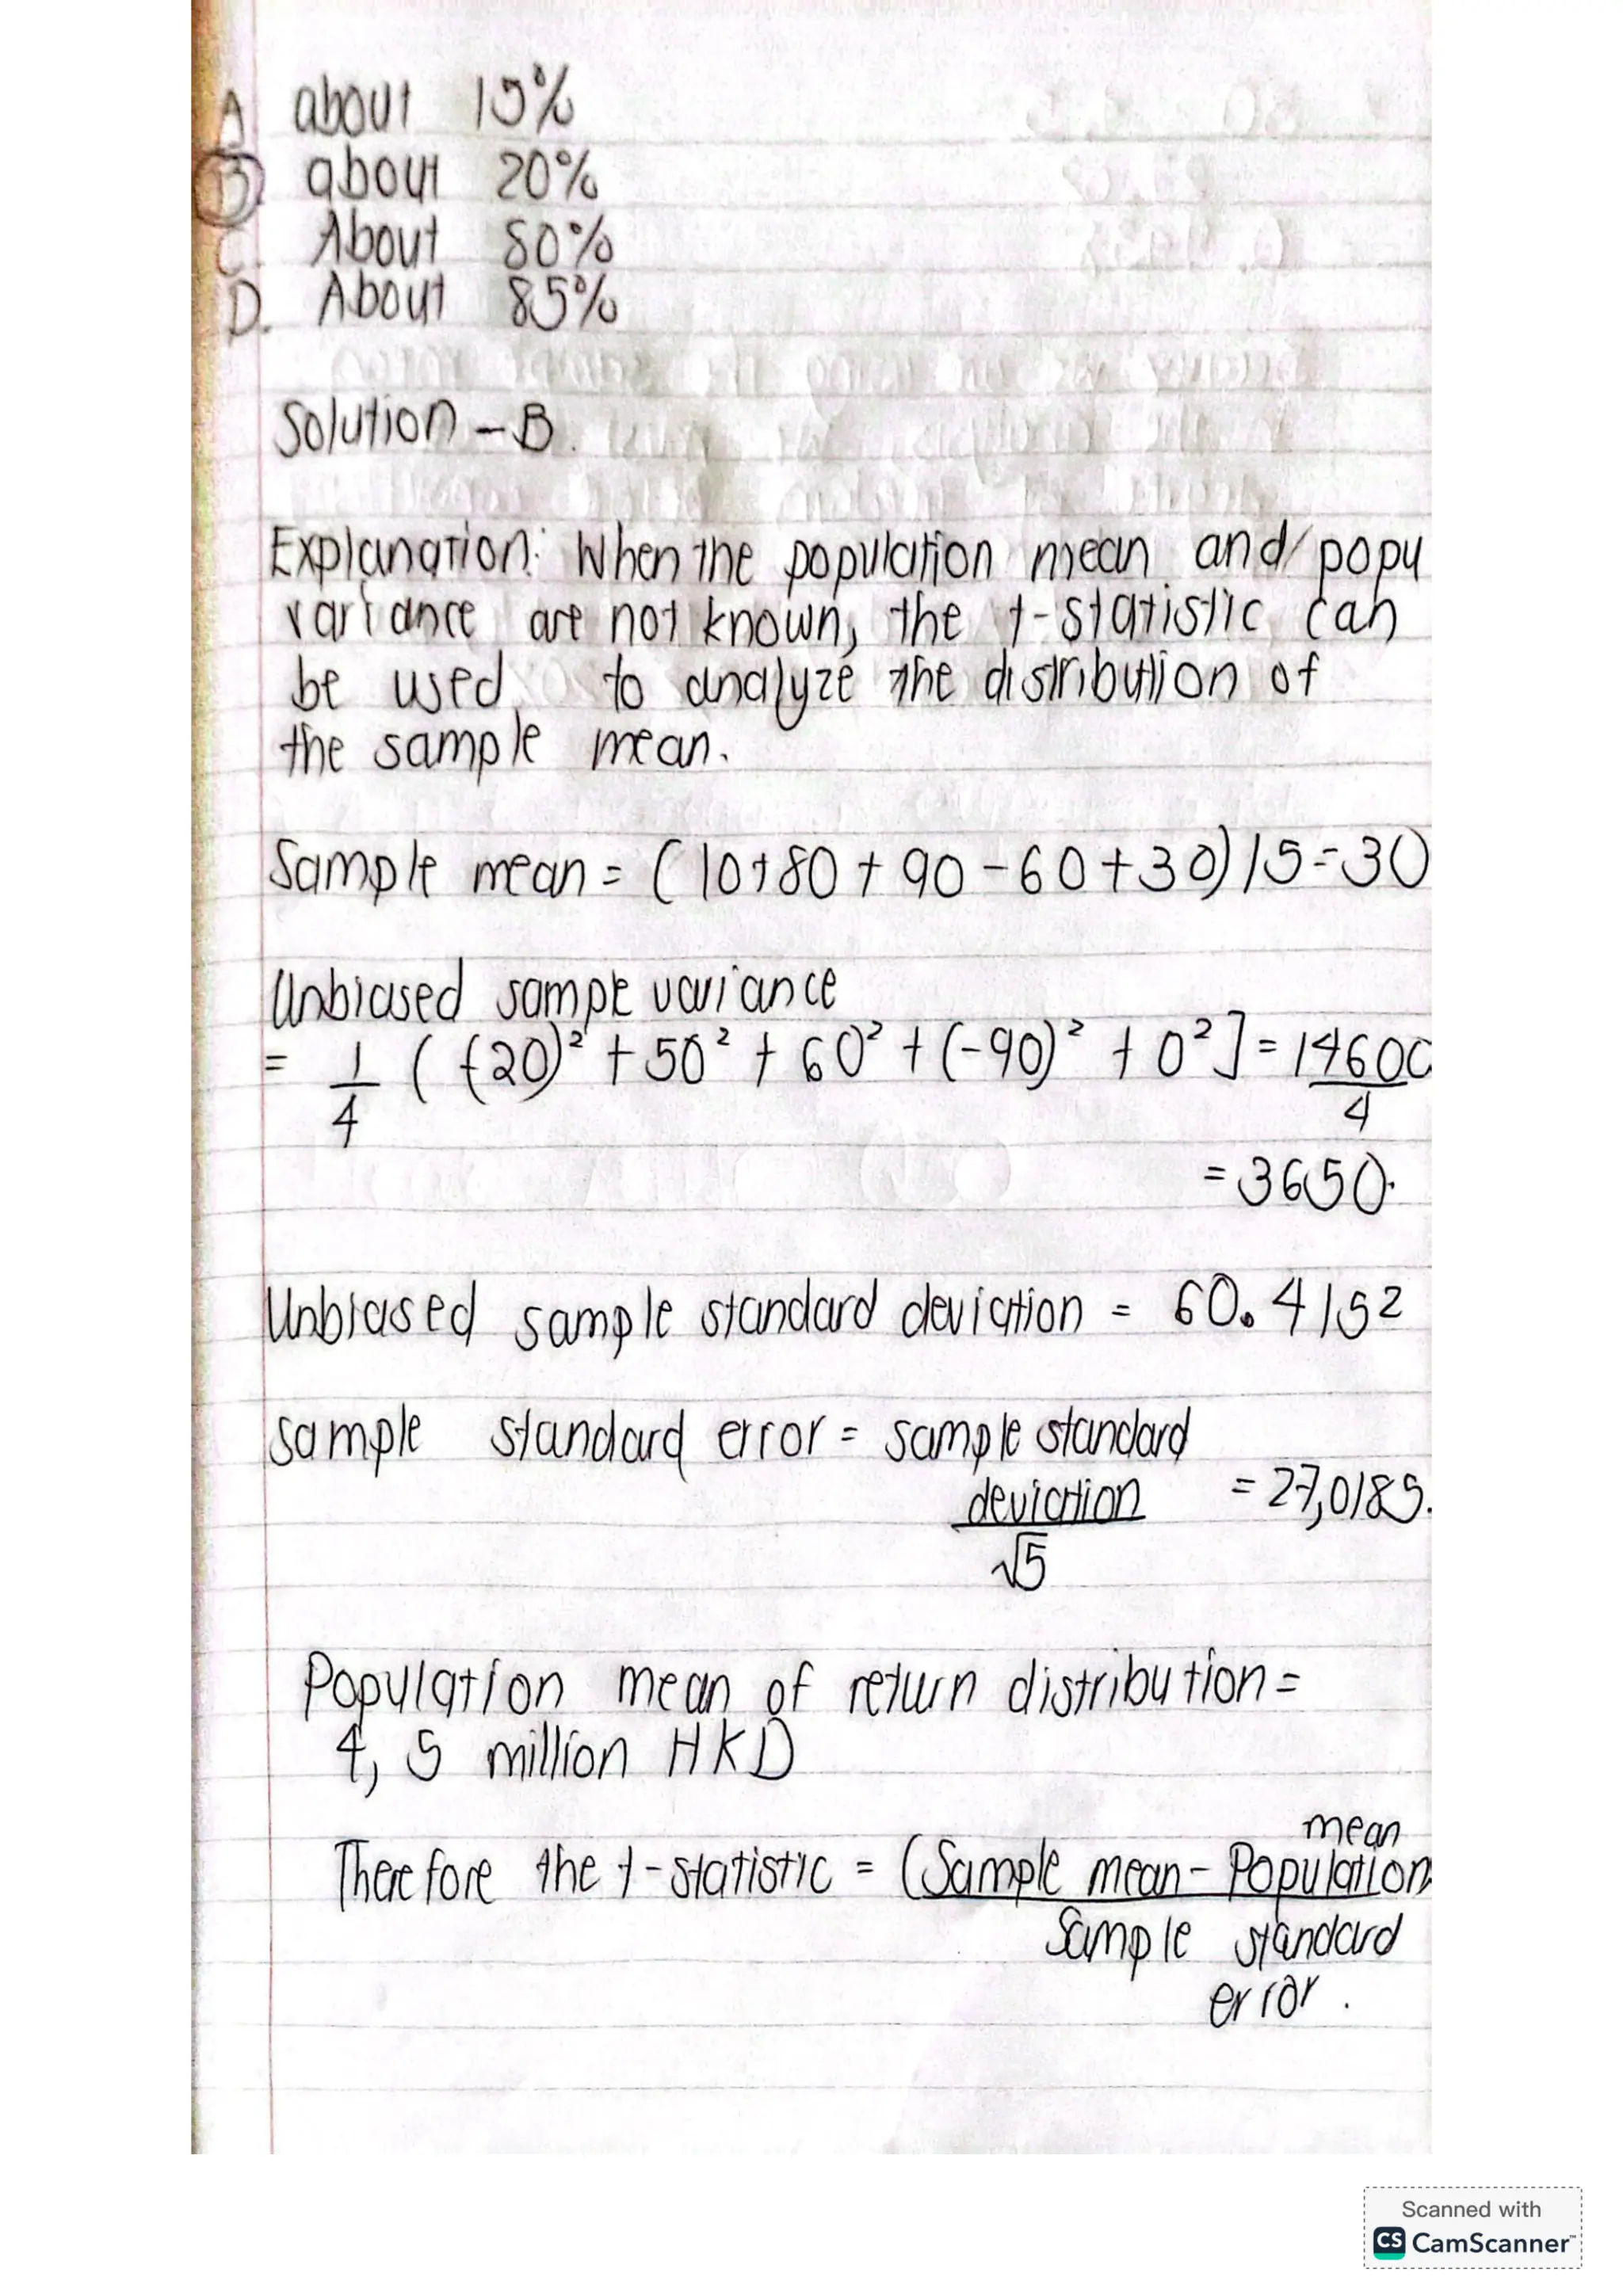 A. about 15%
B. about 20%
C. About 80%
D. About 85%
Solution - B.
Explanation: When the population mean and/popu
variance are not known, the t-statistic can
be used to analyze the distribution of
the sample mean.
Sample mean = (10+80+90-60+30)/5=30
Unbiased sample variance
= 1/4 ((-20)² + 50² + 60² + (-90)² + 0²] = 14600/4
= 3650.
Unbiased sample standard deviation = 60.4152
sample standard error = sample standard
deviation = 27,0185.
√5
Population mean of return distribution =
4,5 million HKD
mean
Therefore the t-statistic = (Sample mean - Population
Sample standard
error.
Scanned with
CS CamScanner™